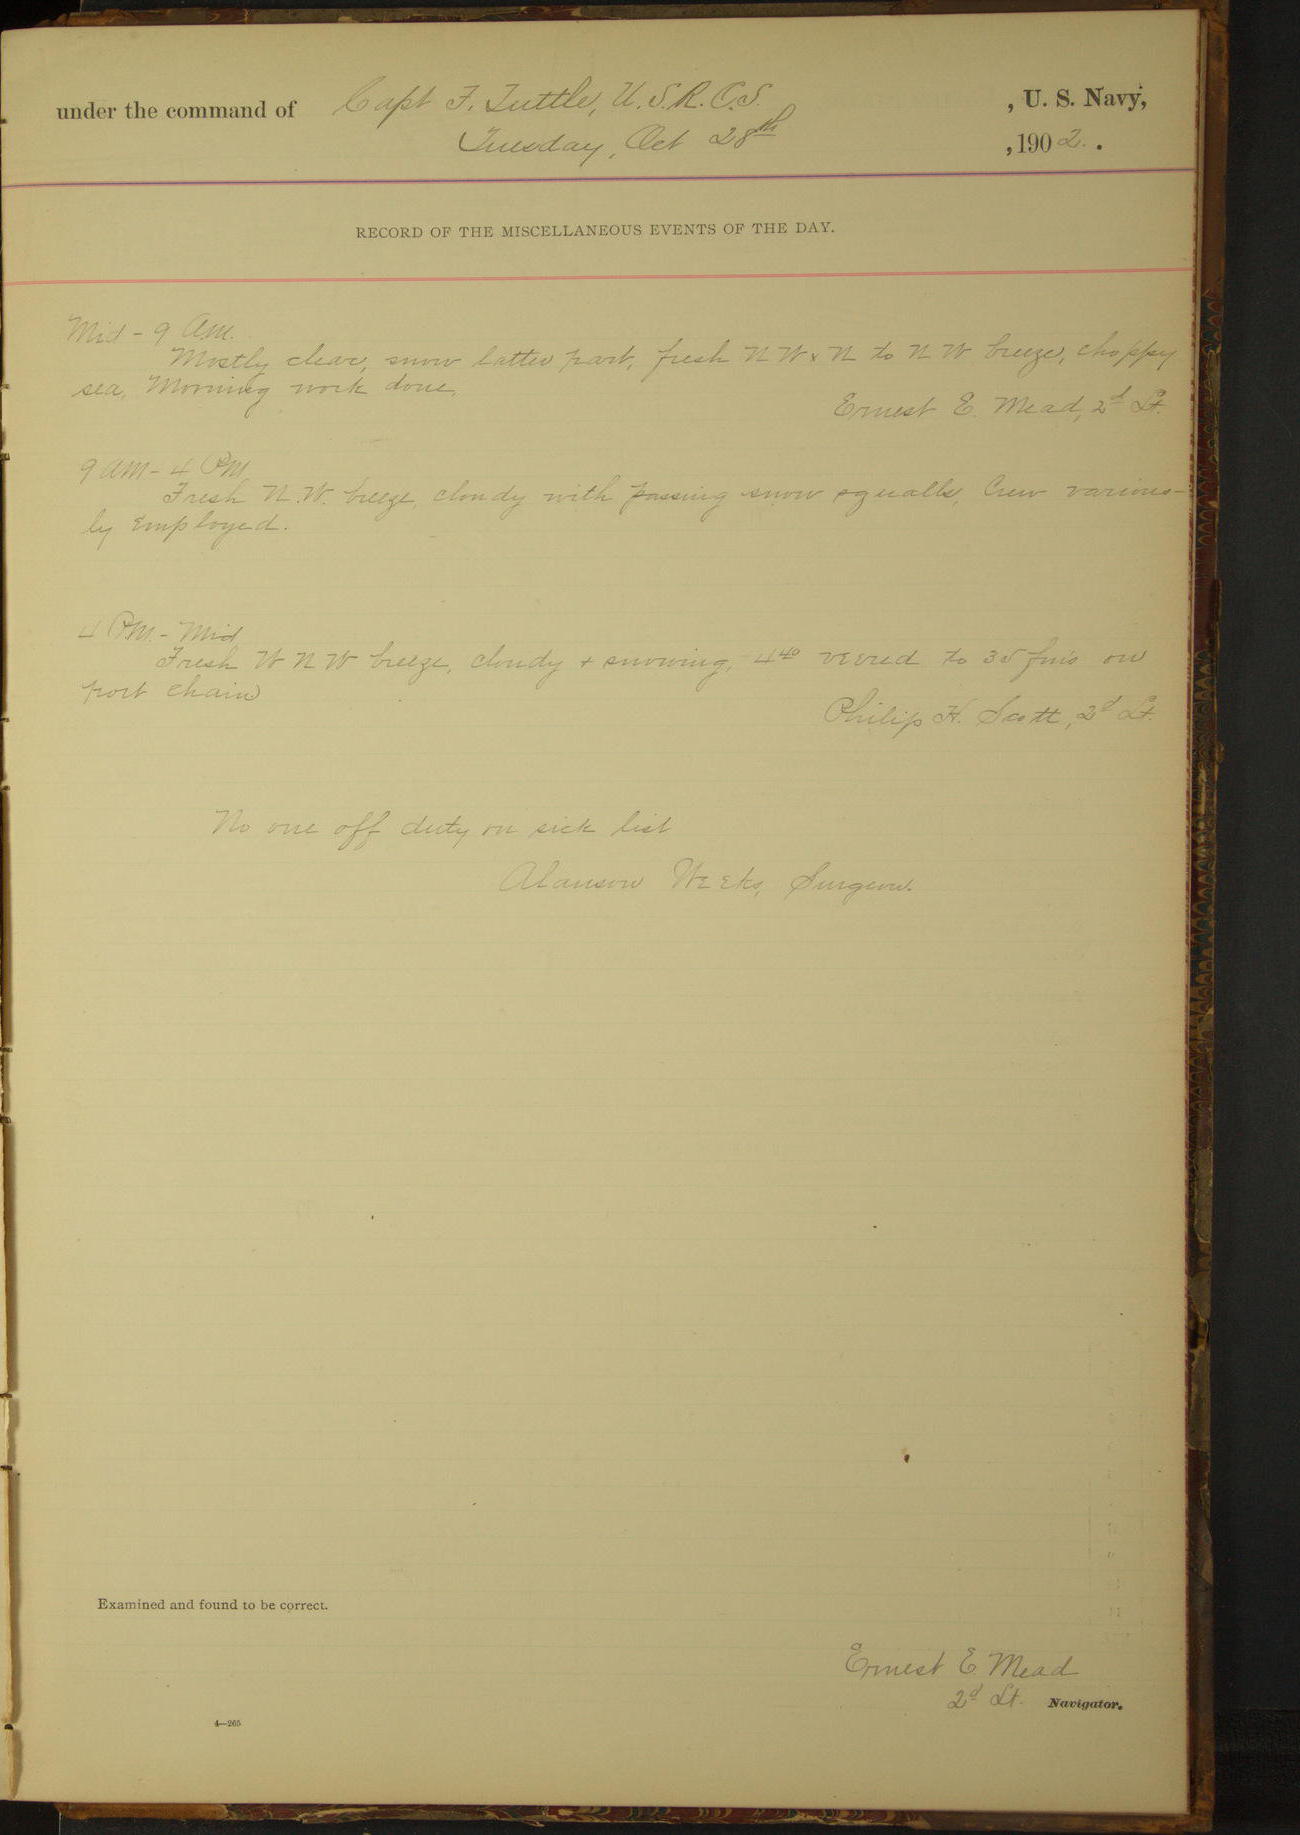 under the command of Capt F. Tuttle, U.S.R.C.S. , U. S. Navy,
Tuesday, Oct 28th , 1902. .
RECORD OF THE MISCELLANEOUS EVENTS OF THE DAY.
Mid - 9 AM.
Mostly clear, snow latter part, fresh NW x N to NW breeze, choppy
sea, Morning work done.
Ernest E. Mead, 2d Lt.
9 AM - 4 PM
Fresh N.W. breeze, cloudy with passing snow squalls, Crew various-
ly Employed.
4 PM. - Mid
Fresh WNW breeze, cloudy + snowing, 4 40 veered to 35 fms on
port chain
Philip H. Scott, 2d Lt.
No one off duty on sick list
Alanson Weeks, Surgeon.
Examined and found to be correct.
Ernest E. Mead
2d Lt. Navigator.
4—265